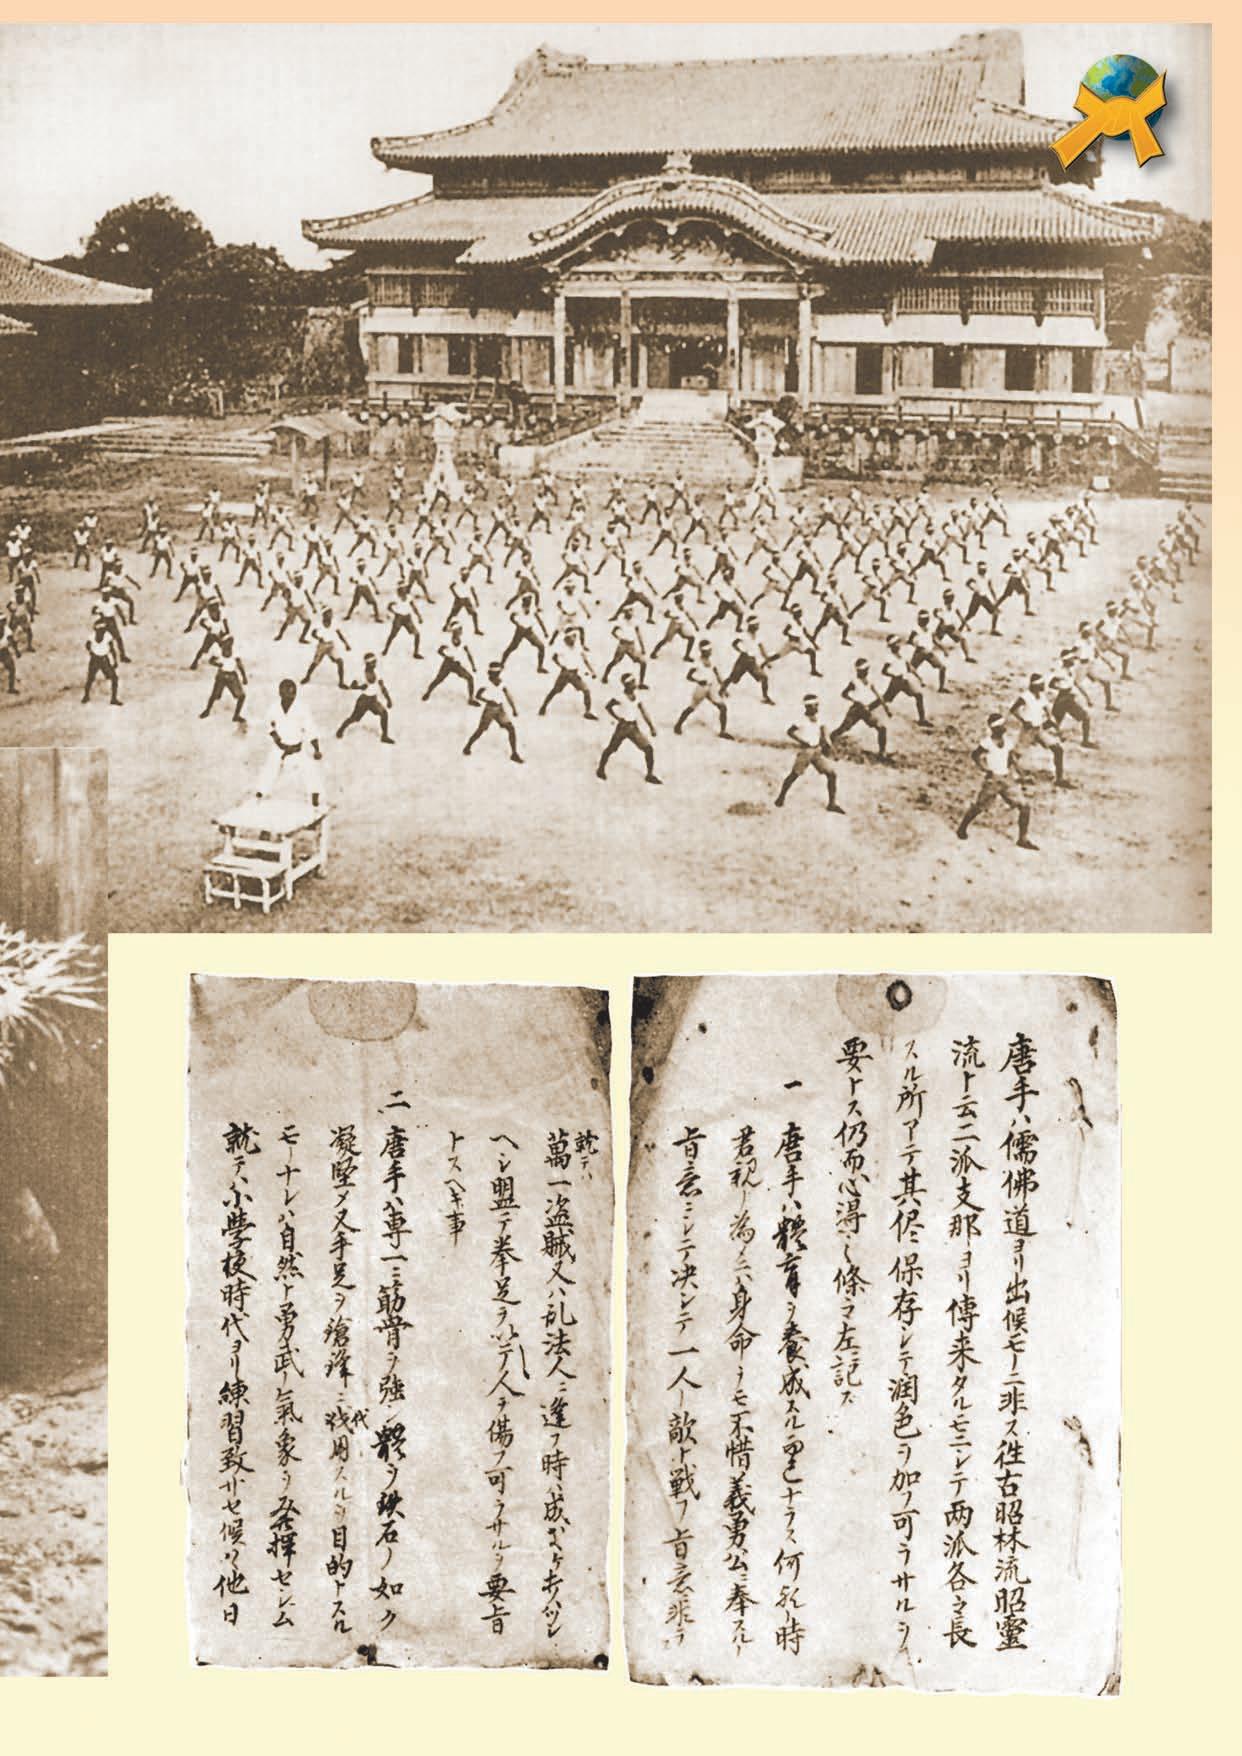 唐手ハ儒佛道ヨリ出候モノニ非ス往古昭林流昭靈
流ト云二派支那ヨリ傳来タルモニシテ两派各々長
スル所アテ其侭保存シテ潤色ヲ加フ可ラサルヲ
要トス仍而心得ノ條々左ニ記ス
一 唐手ハ體育ヲ養成スル而已ナラス何レノ時
君親ノ為メニハ身命ヲモ不惜義勇公ニ奉スルノ
旨意ニシテ决シテ一人ノ敵ト戦フ旨意非ラ
就テハ
萬一盗賊又ハ乱法人ニ逢フ時ハ成
ヘシ盟テ拳足ヲ以テ人ヲ傷フ可ラサルヲ要旨
トスヘキ事
二 唐手ハ専一ニ筋骨ヲ強シ體ヲ鉄石ノ如ク
凝堅メ又手足ヲ鎗鋒ニ代用スルヲ目的トスル
モノナレハ自然ト勇武ノ氣象ヲ發揮セシム
就テハ小學校時代ヨリ練習致サセ候ハヽ他日